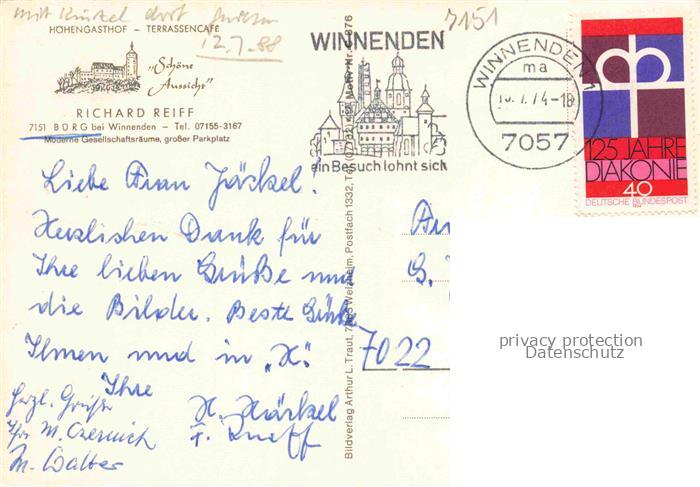 mit Kunkel dort gewesen
12.7.88
7151
HÖHENGASTHOF – TERRASSENCAFÉ
„Schöne
Aussicht"
RICHARD REIFF
7151 BÜRG bei Winnenden – Tel. 07155-3167
Moderne Gesellschaftsräume, großer Parkplatz
WINNENDEN
ein Besuch lohnt sich
WINNENDEN 1
ma
7.74-18
7057
125 JAHRE
DIAKONIE
40
DEUTSCHE BUNDESPOST
Liebe Frau Jäckel!
Herzlichen Dank für
Ihre lieben Grüße und
die Bilder. Beste Grüße
Ihnen und in „H".
Ihre
H. Härkel
Herzl. Grüße
Ihr M. Czernich
M. Walter
7022
Bildverlag Arthur L. Traut, Welzheim, Postfach 1332, Tel.
privacy protection
Datenschutz